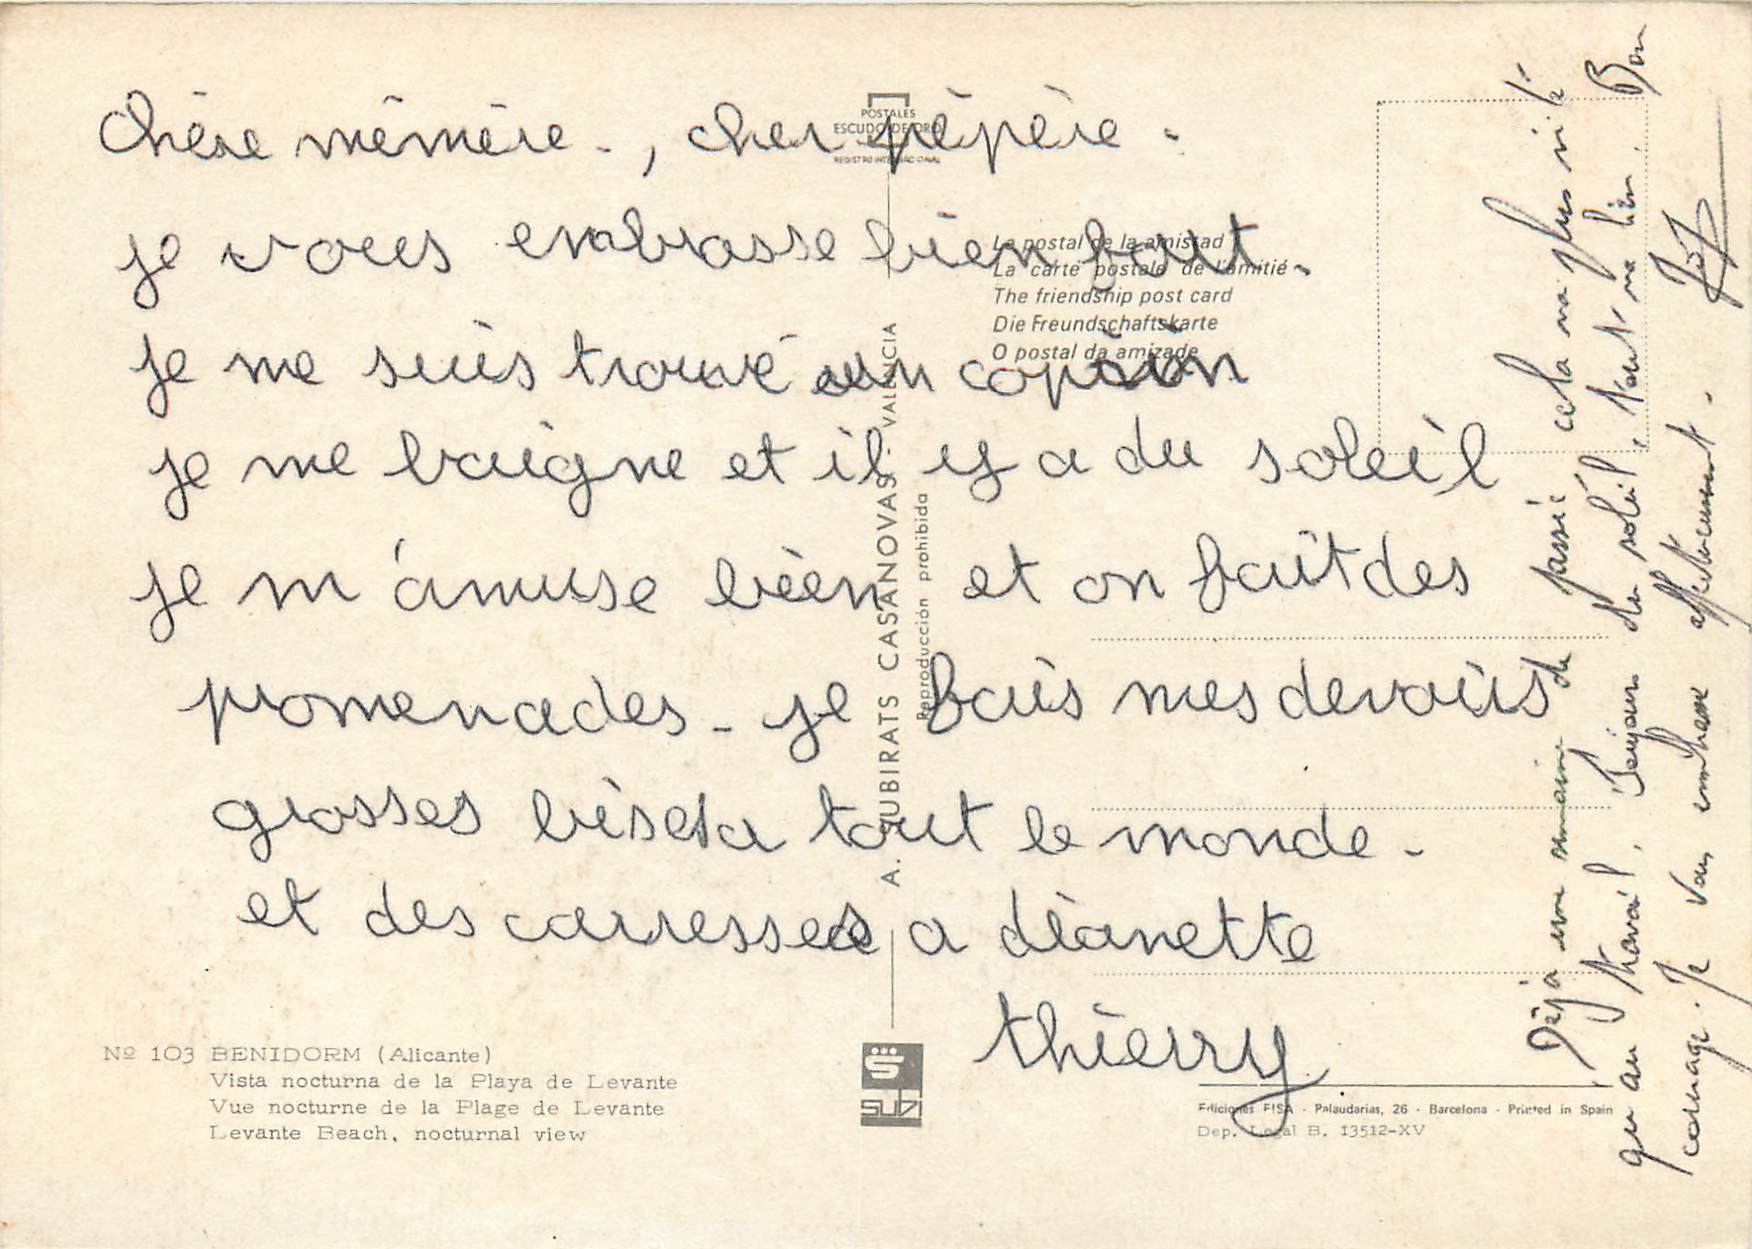 Chère mémère - , cher pépère -
je vous embrasse bien fort -
je me suis trouvé un copain
je me baigne et il y a du soleil
je m'amuse bien et on fait des
promenades - je fais mes devoirs
grosses bises a tout le monde -
et des carresses a dianette
thierry
Déjà une semaine de passée cela va plus vite
qu'au travail. Toujours du soleil, tout va bien. Bon
courage. Je vous embrasse affectueusement.
POSTALES
ESCUDO DE ORO
REGISTRO INTERNACIONAL
La postal de la amistad
La carte postale de l'amitié
The friendship post card
Die Freundschaftskarte
O postal da amizade
A. SUBIRATS CASANOVAS. VALENCIA
Reproducción prohibida
Nº 103 BENIDORM (Alicante)
Vista nocturna de la Playa de Levante
Vue nocturne de la Plage de Levante
Levante Beach, nocturnal view
SUBI
Ediciones FISA - Palaudarias, 26 - Barcelona - Printed in Spain
Dep. Legal B. 13512-XV